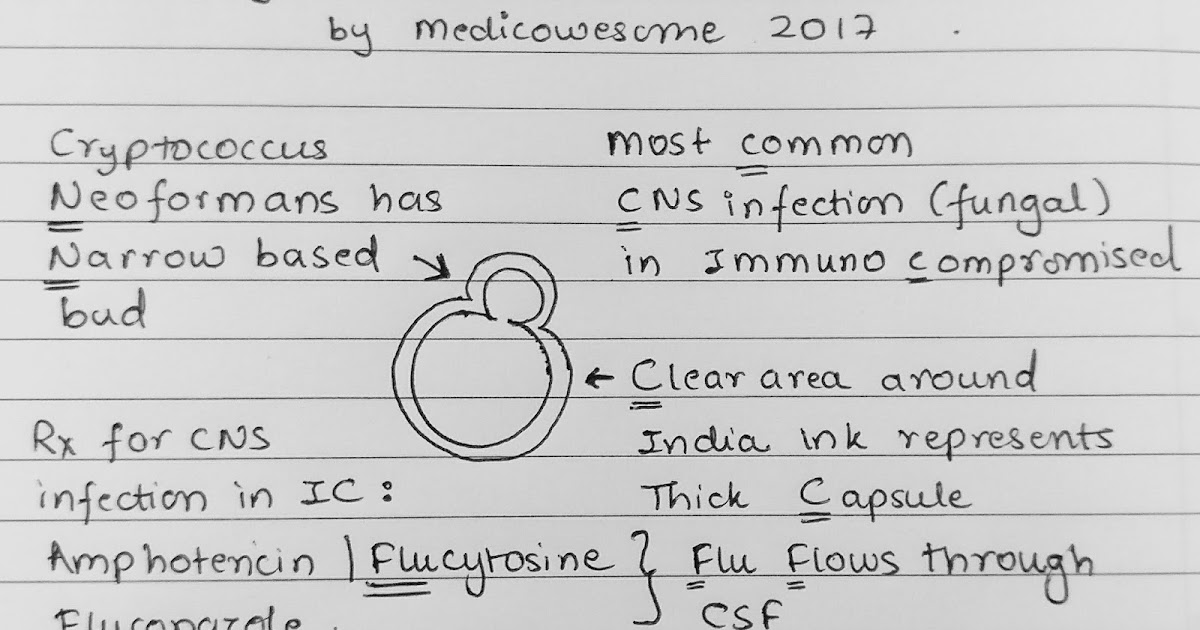 by medicowesome 2017 .
Cryptococcus
Neoformans has
Narrow based
bud
most common
CNS infection (fungal)
in Immuno compromised
← Clear area around
India ink represents
Thick Capsule
Rx for CNS
infection in IC :
Amphotericin | Flucytosine } Flu Flows through
Fluconazole . CSF